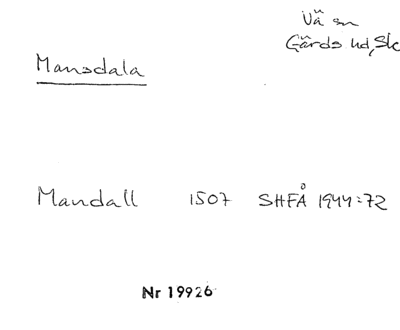 Vä sn
Gärds hd, Sk
Mansdala
Mandall 1507 SHFÅ 1944:72
Nr 19926